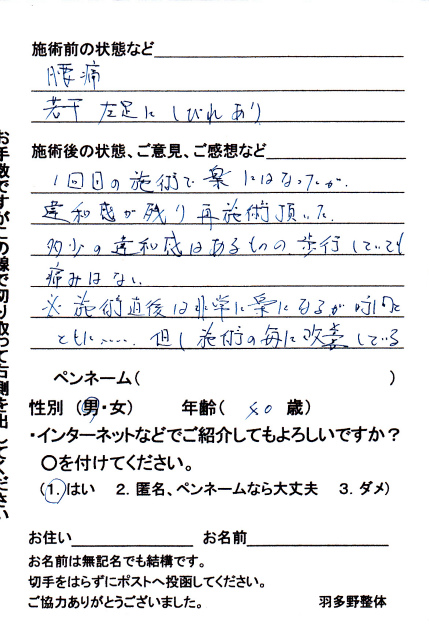 施術前の状態など
腰痛
若干 左足に しびれあり
施術後の状態、ご意見、ご感想など
1回目の施術で楽にはなったが、
違和感が残り再施術頂いた。
多少の違和感はあるものの、歩行していても
痛みはない。
※施術直後は非常に楽になるが時間と
ともに……但し施術の毎に改善している
ペンネーム( )
性別 (男・女) 年齢( 40 歳)
・インターネットなどでご紹介してもよろしいですか?
○を付けてください。
(1. はい 2. 匿名、ペンネームなら大丈夫 3. ダメ)
お住い お名前
お名前は無記名でも結構です。
切手をはらずにポストへ投函してください。
ご協力ありがとうございました。 羽多野整体
お手数ですがこの線で切り取って右側を出してください